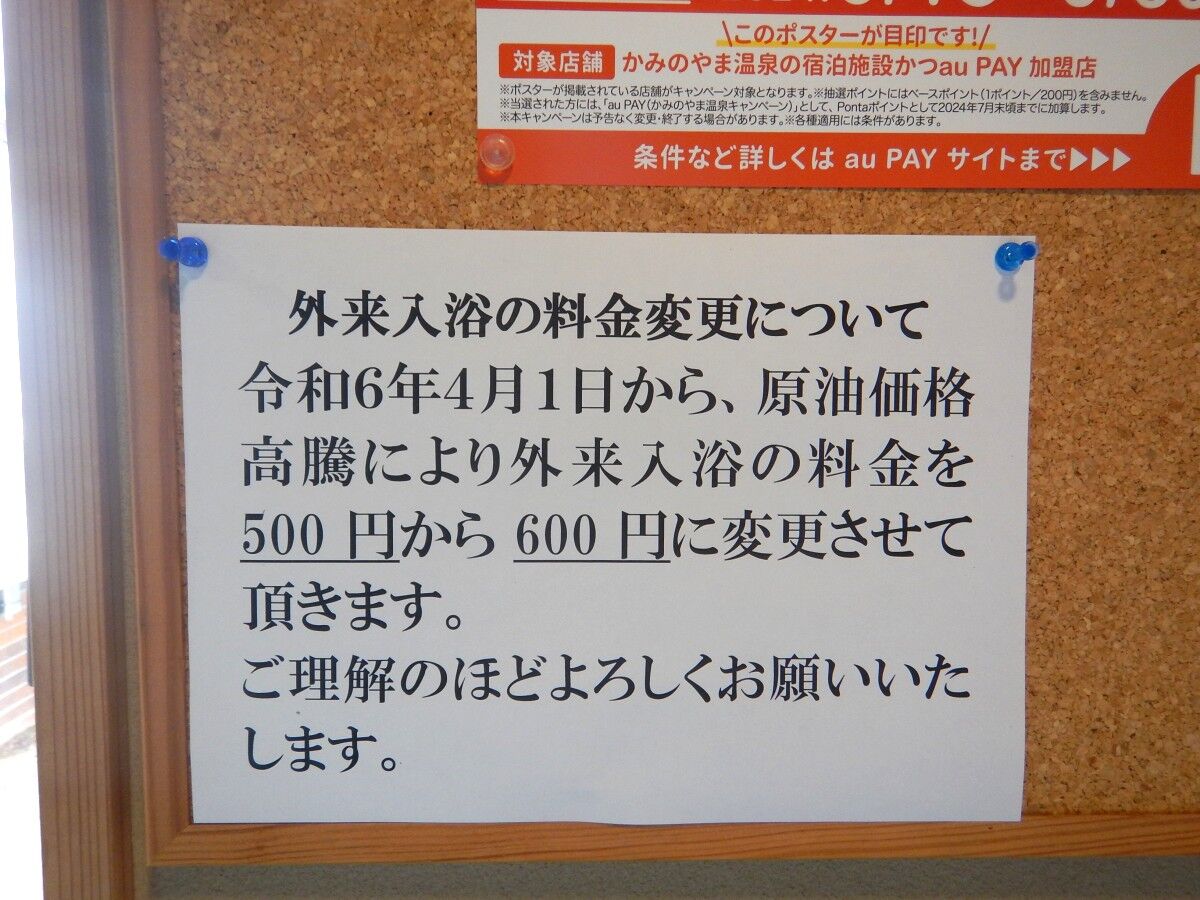 \このポスターが目印です!/
対象店舗 かみのやま温泉の宿泊施設かつau PAY 加盟店
※ポスターが掲載されている店舗がキャンペーン対象となります。※抽選ポイントにはベースポイント(1ポイント/200円)を含みません。
※当選された方には、「au PAY(かみのやま温泉キャンペーン)」として、Pontaポイントとして2024年7月末頃までに加算します。
※本キャンペーンは予告なく変更・終了する場合があります。※各種適用には条件があります。
条件など詳しくは au PAY サイトまで▶▶▶
外来入浴の料金変更について
令和6年4月1日から、原油価格
高騰により外来入浴の料金を
500 円から 600 円に変更させて
頂きます。
ご理解のほどよろしくお願いいた
します。